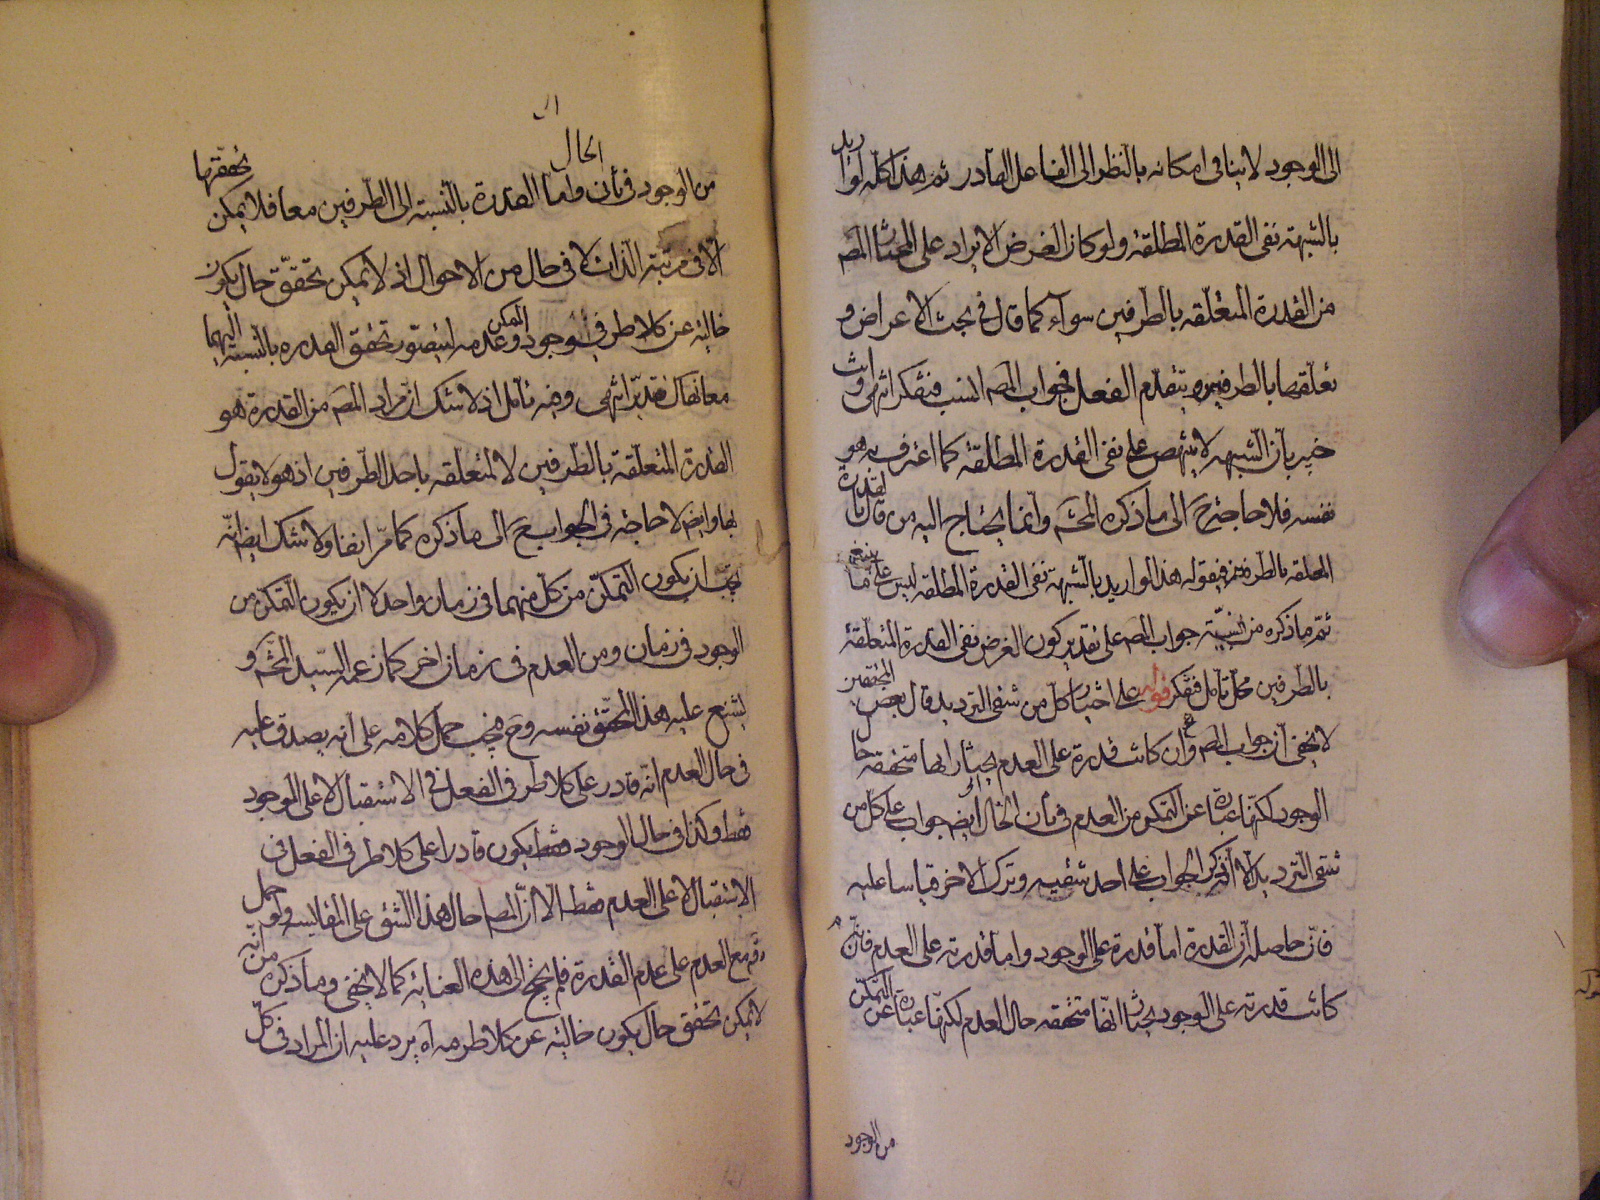 الى الوجود لا ينافى امكانه بالنظر الى الفاعل القادر ثم هذا كله لو اريد
بالشبهة نفى القدرة المطلقة ولو كان الغرض الايراد على المختار المص
من القدرة المتعلقة بالطرفين سواء كما قال فى بحث الاعراض و
تعلقها بالطرفين ويتقدم الفعل فجواب المص انسب فتفكر انتهى وانت
خبير بان الشبهة لا ينتهض على نفى القدرة المطلقة كما اعترف به هو
نفسه فلا حاجة ح الى ما ذكره المحشى وانما يحتاج اليه من قال بالقدرة
المطلقة بالطرفين فقوله هذا لو اريد بالشبهة نفى القدرة المطلقة ليس على ما ينبغى
ثم ما ذكره من جواب المص على تقدير كون الغرض نفى القدرة المتعلقة
بالطرفين محل تامل فتفكر قوله على اختيار كل من شقى الترديد قال بعض المحققين
لا يخفى ان جواب المص وان كانت قدرة على العدم يختار انها متحققة حال
الوجود لكنها عبارة عن التمكن من العدم فى ثانى الحال ايضا جواب على كل من
شقى الترديد الا انه ذكر الجواب على احد شقيه وترك الاخر قياسا عليه
فان حاصله ان القدرة اما قدرة على الوجود واما قدرته على العدم فان
كانت قدرته على الوجود يختار انها متحققة حال العدم لكنها عبارة عن التمكن
من الوجود
من الوجود فى ثانى الحال واما القدرة بالنسبة الى الطرفين معا فلا يمكن تحققها
الا فى مرتبة الذات لا فى حال من الاحوال اذ لا يمكن تحقق حال يكون
خالية عن كلا طرفى وجود الممكن وعدمه ليتصور تحقق القدرة بالنسبة اليهما
معا انتهى وفيه تامل اذ لا شك ان مراد المص من القدرة هو
القدرة المتعلقة بالطرفين لا المتعلقة باحد الطرفين اذ هو لا يقول
بها وايضا لا حاجة فى الجواب ح الى ما ذكره كما مر انفا ولا شك ايضا انه
يجب ان يكون التمكن من كل منهما فى زمان واحد لا ان يكون التمكن من
الوجود فى زمان ومن العدم فى زمان اخر كما زعمه السيد المحشى و
يشنع عليه هذا المحقق نفسه وح يجب حمل كلامه على انه يصدق عليه
فى حال العدم انه قادر على كلا طرفى الفعل فى الاستقبال لا على الوجود
فقط وكذا فى حال الوجود فقط يكون قادرا على كلا طرفى الفعل فى
الاستقبال لا على العدم فقط الا ان المص احال هذا الشق على المقايسة ولو حمل
مع العدم على عدم القدرة فلم يحتج الى هذه العناية كما لا يخفى وما ذكره من انه
لا يمكن تحقق حال يكون خالية عن كلا طرفيه اه يرد عليه ان المراد فى كل